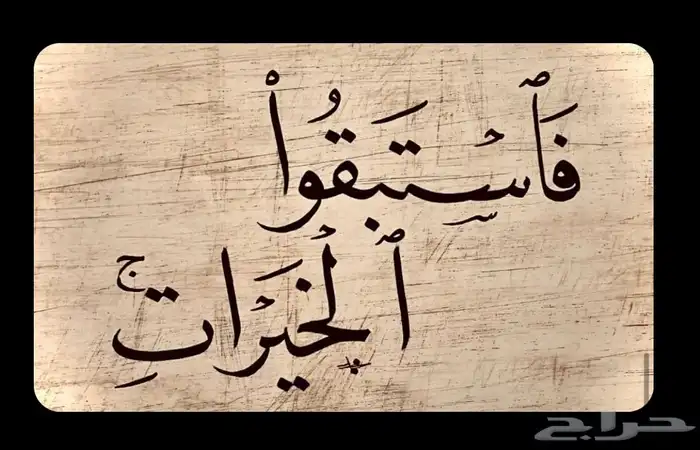 فَٱسْتَبِقُوا۟
ٱلْخَيْرَاتِ ۚ
حراج